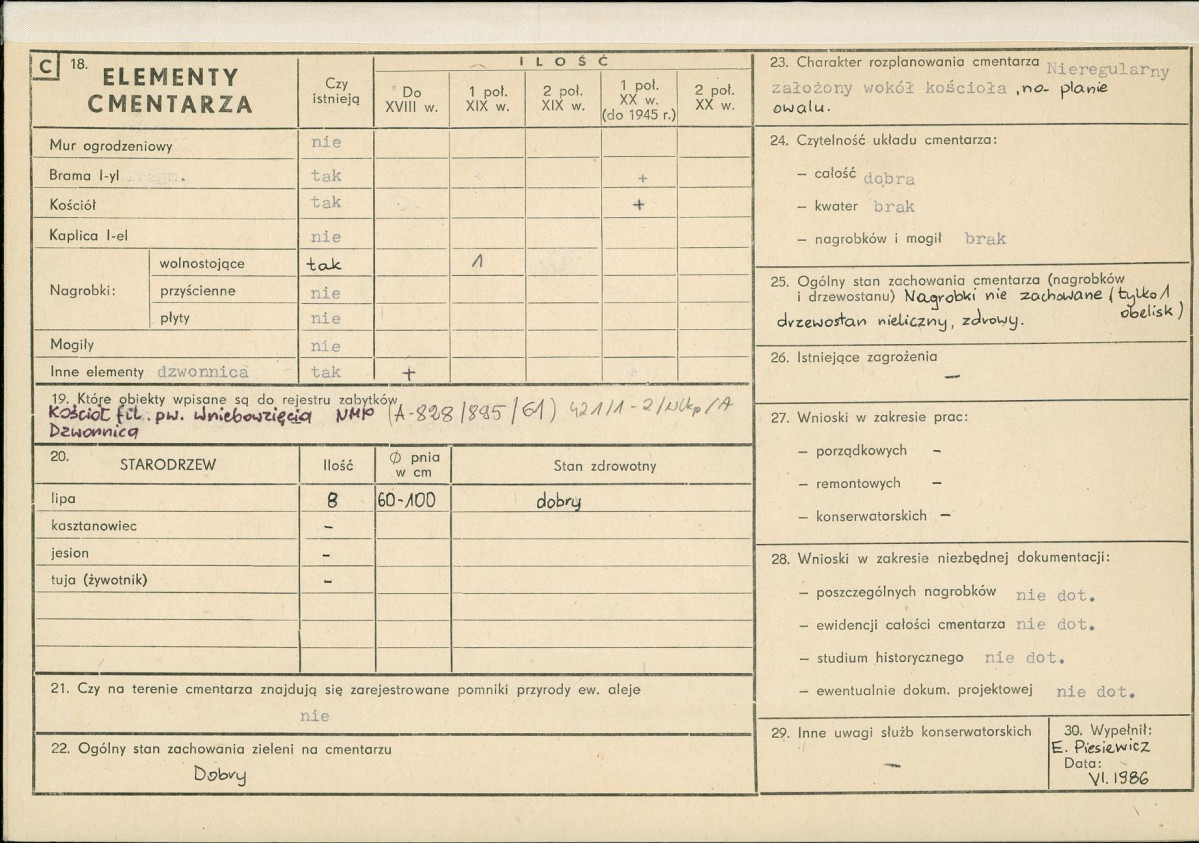 C 18. ELEMENTY CMENTARZA
Czy istnieją
ILOŚĆ
Do XVIII w.
1 poł. XIX w.
2 poł. XIX w.
1 poł. XX w. (do 1945 r.)
2 poł. XX w.
Mur ogrodzeniowy nie
Brama I-yl tak +
Kościół tak +
Kaplica I-el nie
Nagrobki:
wolnostojące tak 1
przyścienne nie
płyty nie
Mogiły nie
Inne elementy dzwonnica tak +
19. Które obiekty wpisane są do rejestru zabytków
Kościół fil. pw. Wniebowzięcia NMP (A-828/895/61) 421/1-2/Wlkp/A
Dzwonnica
20. STARODRZEW Ilość Ø pnia w cm Stan zdrowotny
lipa 8 60-100 dobry
kasztanowiec –
jesion –
tuja (żywotnik) –
21. Czy na terenie cmentarza znajdują się zarejestrowane pomniki przyrody ew. aleje
nie
22. Ogólny stan zachowania zieleni na cmentarzu
Dobry
23. Charakter rozplanowania cmentarza Nieregularny
założony wokół kościoła, na planie
owalu.
24. Czytelność układu cmentarza:
– całość dobra
– kwater brak
– nagrobków i mogił brak
25. Ogólny stan zachowania cmentarza (nagrobków
i drzewostanu) Nagrobki nie zachowane (tylko 1
obelisk)
drzewostan nieliczny, zdrowy.
26. Istniejące zagrożenia
—
27. Wnioski w zakresie prac:
– porządkowych –
– remontowych –
– konserwatorskich –
28. Wnioski w zakresie niezbędnej dokumentacji:
– poszczególnych nagrobków nie dot.
– ewidencji całości cmentarza nie dot.
– studium historycznego nie dot.
– ewentualnie dokum. projektowej nie dot.
29. Inne uwagi służb konserwatorskich
—
30. Wypełnił:
E. Piesiewicz
Data:
VI. 1986